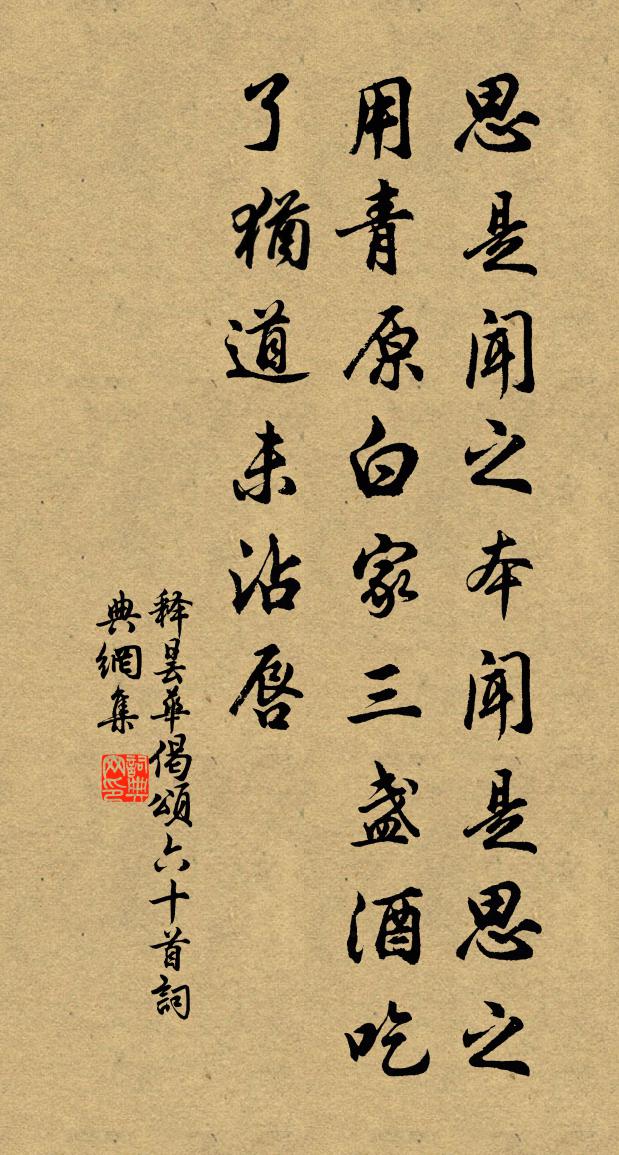 思是闻之本闻是思之
用青原白家三盏酒吃
了猶道未沾唇
释昙華偈頌六十首詞
典網集
詞典网印